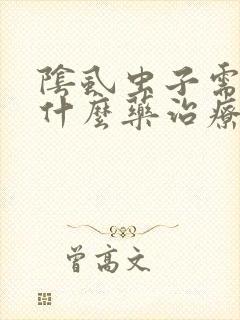 陰虱虫子需
什麼藥治療
曾高文